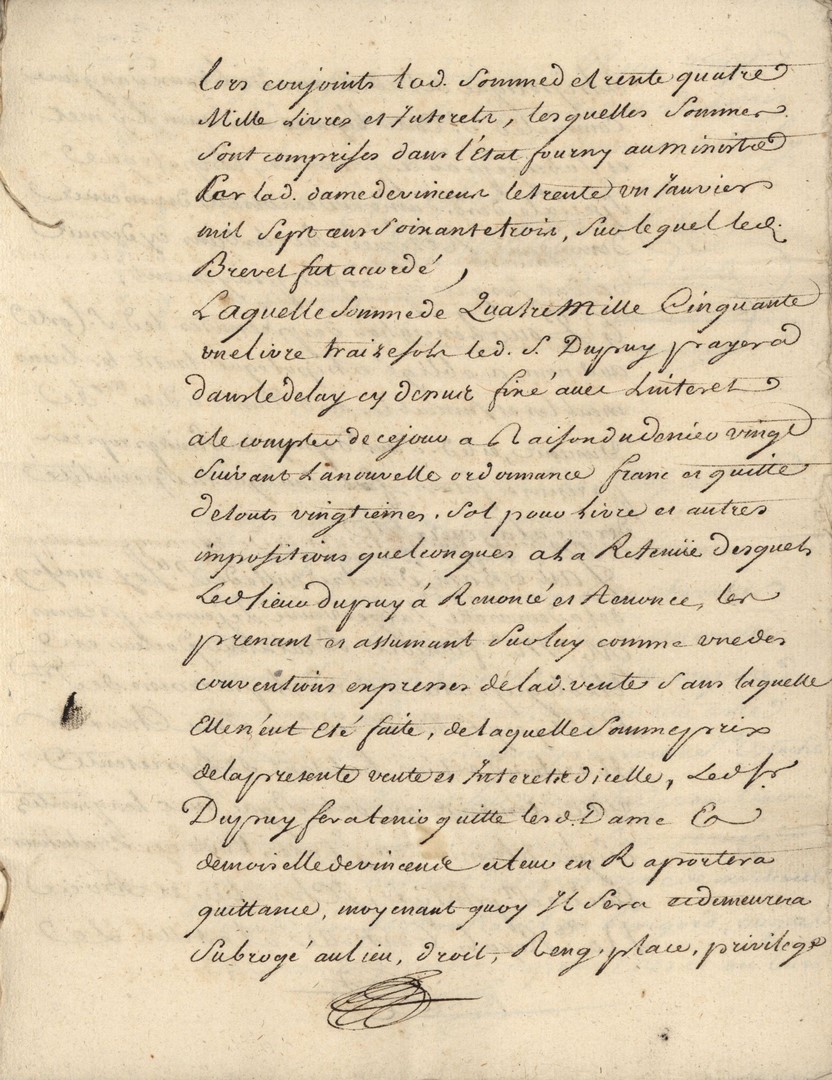 lors conjoints lad. Somme de trente quatre
Mille Livres et Interets, lesquelles Sommes
Sont comprises dans l'État fourny au ministre
Par lad. dame de vincens le trente un Janvier
mil Sept cens Soixante trois, Sur le quel led.
Brevet fut accordé,
Laquelle Somme de Quatre Mille Cinquante
une livre traize sols led. S. Dupuy payera
dans le delay cy dessus fixé avec L'interet
a le compter de ce jour a Raison du denier vingt
Suivant La nouvelle ordonnance franc et quitte
de touts vingtiemes, Sol pour Livre et autres
impositions quelconques a La Retenüe desquels
Led Sieur dupuy á Renoncé et Renonce, les
prenant et assumant Sur luy comme une des
conventions expresses de lad. vente Sans laquelle
Elle n'eut Eté faite, de laquelle Somme prix
de la presente vente et Interets d'icelle, Led Sr.
Dupuy fera tenir quitte lesd. Dame Et
demoiselle de vincens et leur en Raportera
quittance, moyenant quoy Il Sera et demeurera
Subrogé au Lieu, droit, Reng, place, privilege